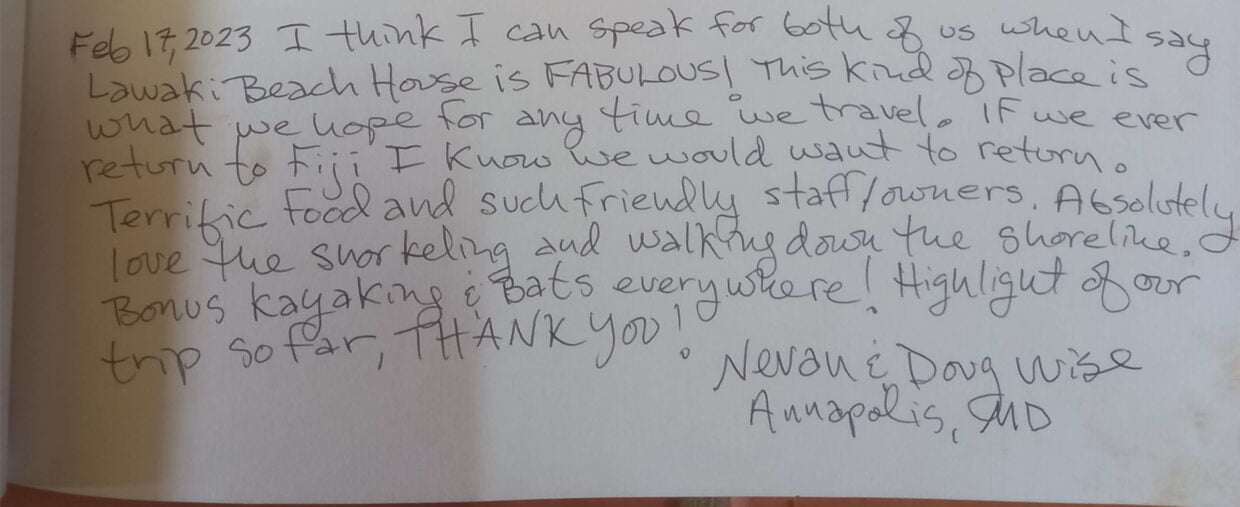 Feb 17, 2023 I think I can speak for both of us when I say
Lawaki Beach House is FABULOUS! This kind of place is
what we hope for any time we travel. If we ever
return to Fiji I know we would want to return.
Terrific food and such friendly staff/owners. Absolutely
love the snorkeling and walking down the shoreline.
Bonus kayaking & Bats everywhere! Highlight of our
trip so far, THANK YOU!
Nevan & Doug Wise
Annapolis, MD